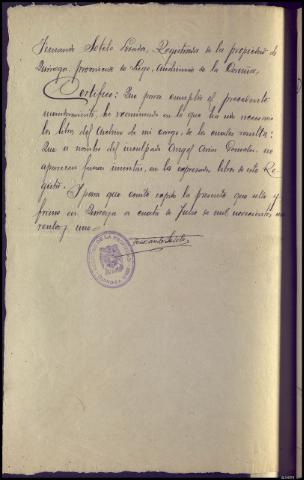 Fernando Sotelo Losada, Registrador de la propiedad de
Quiroga, provincia de Lugo, Audiencia de la Coruña.
Certifico: Que para cumplir el precedente
mandamiento, he examinado en lo que ha sido necesario
los libros del Archivo de mi cargo, de los cuales resulta:
Que a nombre del inculpado Angel Arias González no
aparecen fincas inscritas en los expresados libros de este Re
gistro.
Y para que conste expido la presente que sello y
firmo en Quiroga a cuatro de Julio de mil novecientos cua
renta y uno.